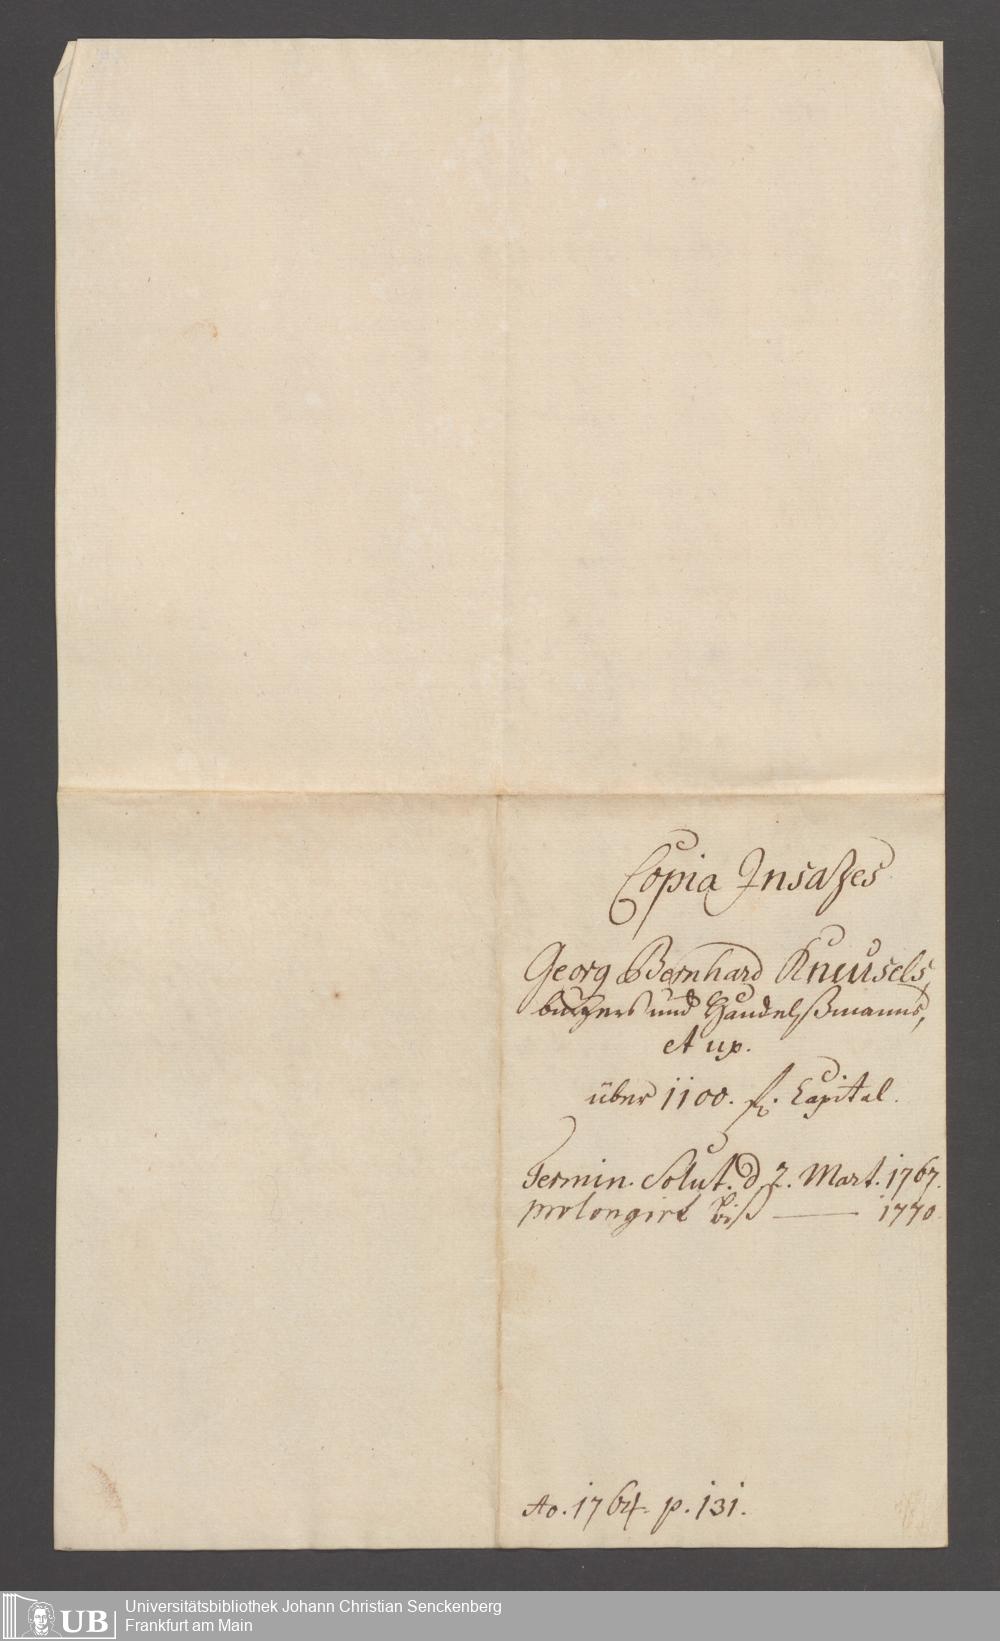 Copia Insatzes
Georg Bernhard Kneusels,
burgers und Handelßmanns,
et ux.
über 1100. fl. Capital.
Termin. Solut. d. 2. Mart. 1767.
prolongirt biß — 1770
Ao. 1764. p. 131.
UB Universitätsbibliothek Johann Christian Senckenberg
Frankfurt am Main